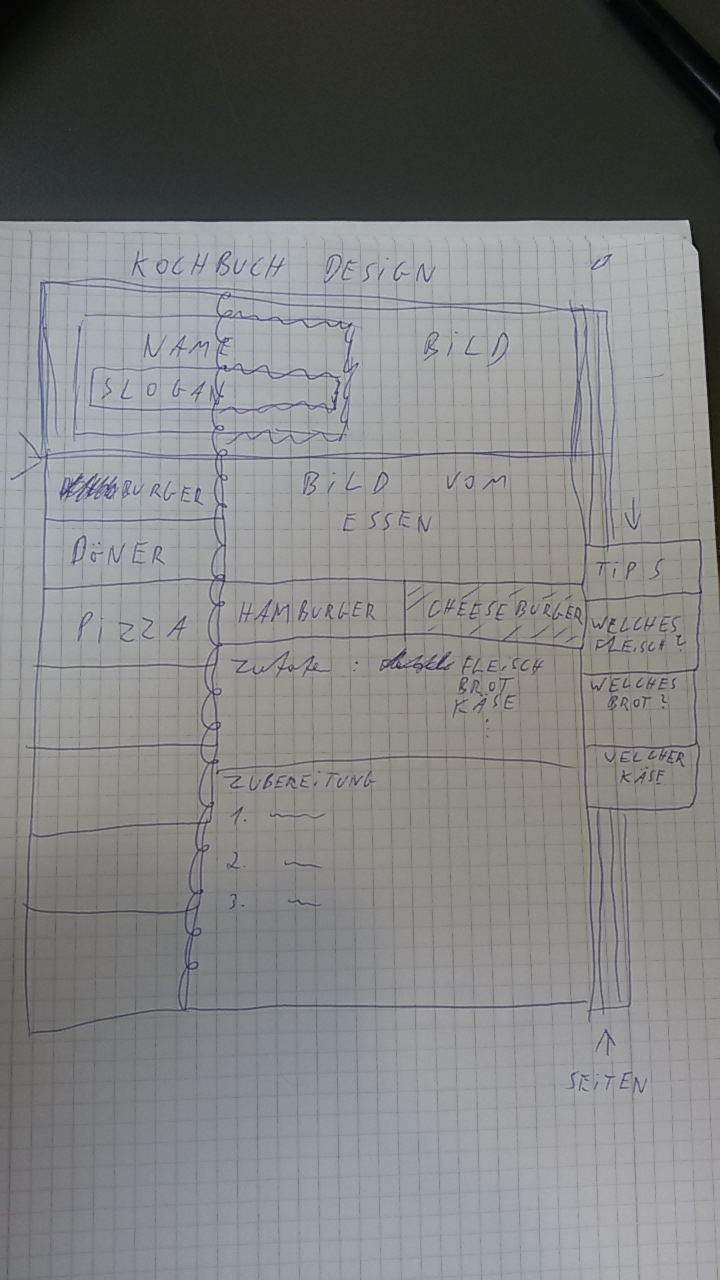 KOCHBUCH DESiGN
NAME
SLOGAN
BiLD
BURGER
DÖNER
PiZZA
BiLD VOM
ESSEN
HAMBURGER
CHEESEBURGER
Zutate :
FLEiSCH
BROT
KÄSE
ZUBEREiTUNG
1.
2.
3.
TiPS
WELCHES
FLEiSCH?
WELCHES
BROT?
WELCHER
KÄSE
SEiTEN